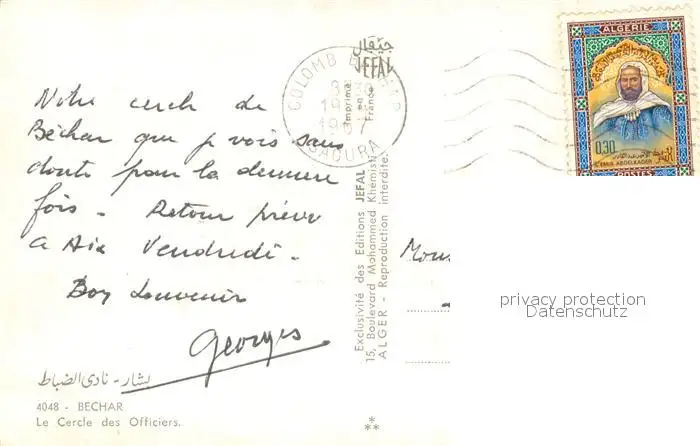 Notre cercle de
Béchar que je vois sans
doute pour la dernière
fois - Retour prévu
à Aix Vendredi -
Bon Souvenir
Georges
بشار - نادى الضباط
4048 - BECHAR
Le Cercle des Officiers.
جيفال
JEFAL
Imprimé en France
COLOMB BECHAR
SAOURA
Exclusivité des Editions JEFAL
15, Boulevard Mohammed Khémisti
ALGER - Reproduction interdite.
ALGERIE
0,30
EMIR ABDELKADER
POSTES
privacy protection
Datenschutz